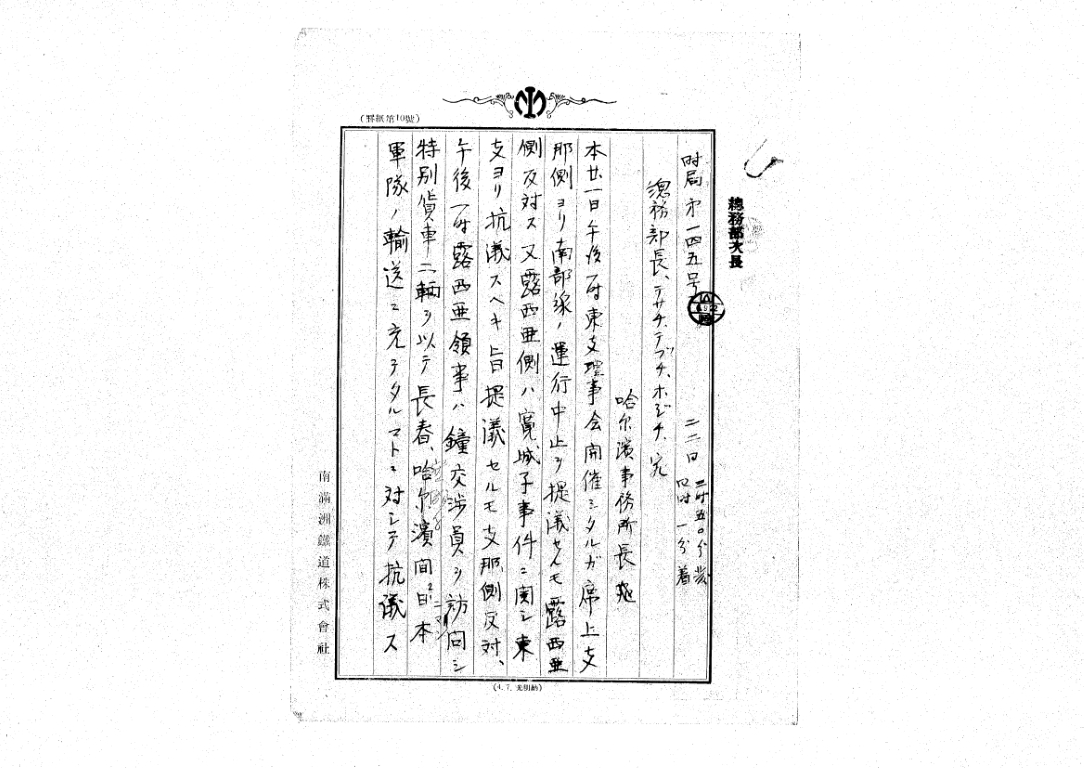 (罫紙第10號)
總務部次長
時局才一四五号
二二日 二時五〇分発
四時一分着
總務部長、テサチ、テブチ、ホジチ、宛
哈尔濱事務所長
本廿一日午後一時東支理事会開催シタルガ席上支
那側ヨリ南部線ノ運行中止ヲ提議セルモ露西亜
側反対ス又露西亜側ハ寛城子事件ニ関シ東
支ヨリ抗議スヘキ旨提議セルモ支那側反対、
午後一時露西亜領事ハ鐘交渉員ヲ訪問シ
特別貨車二輌ヲ以テ長春、哈尓濱間日本
軍隊ノ輸送ニ充テタルコトニ対シテ抗議ス
南滿洲鐵道株式會社